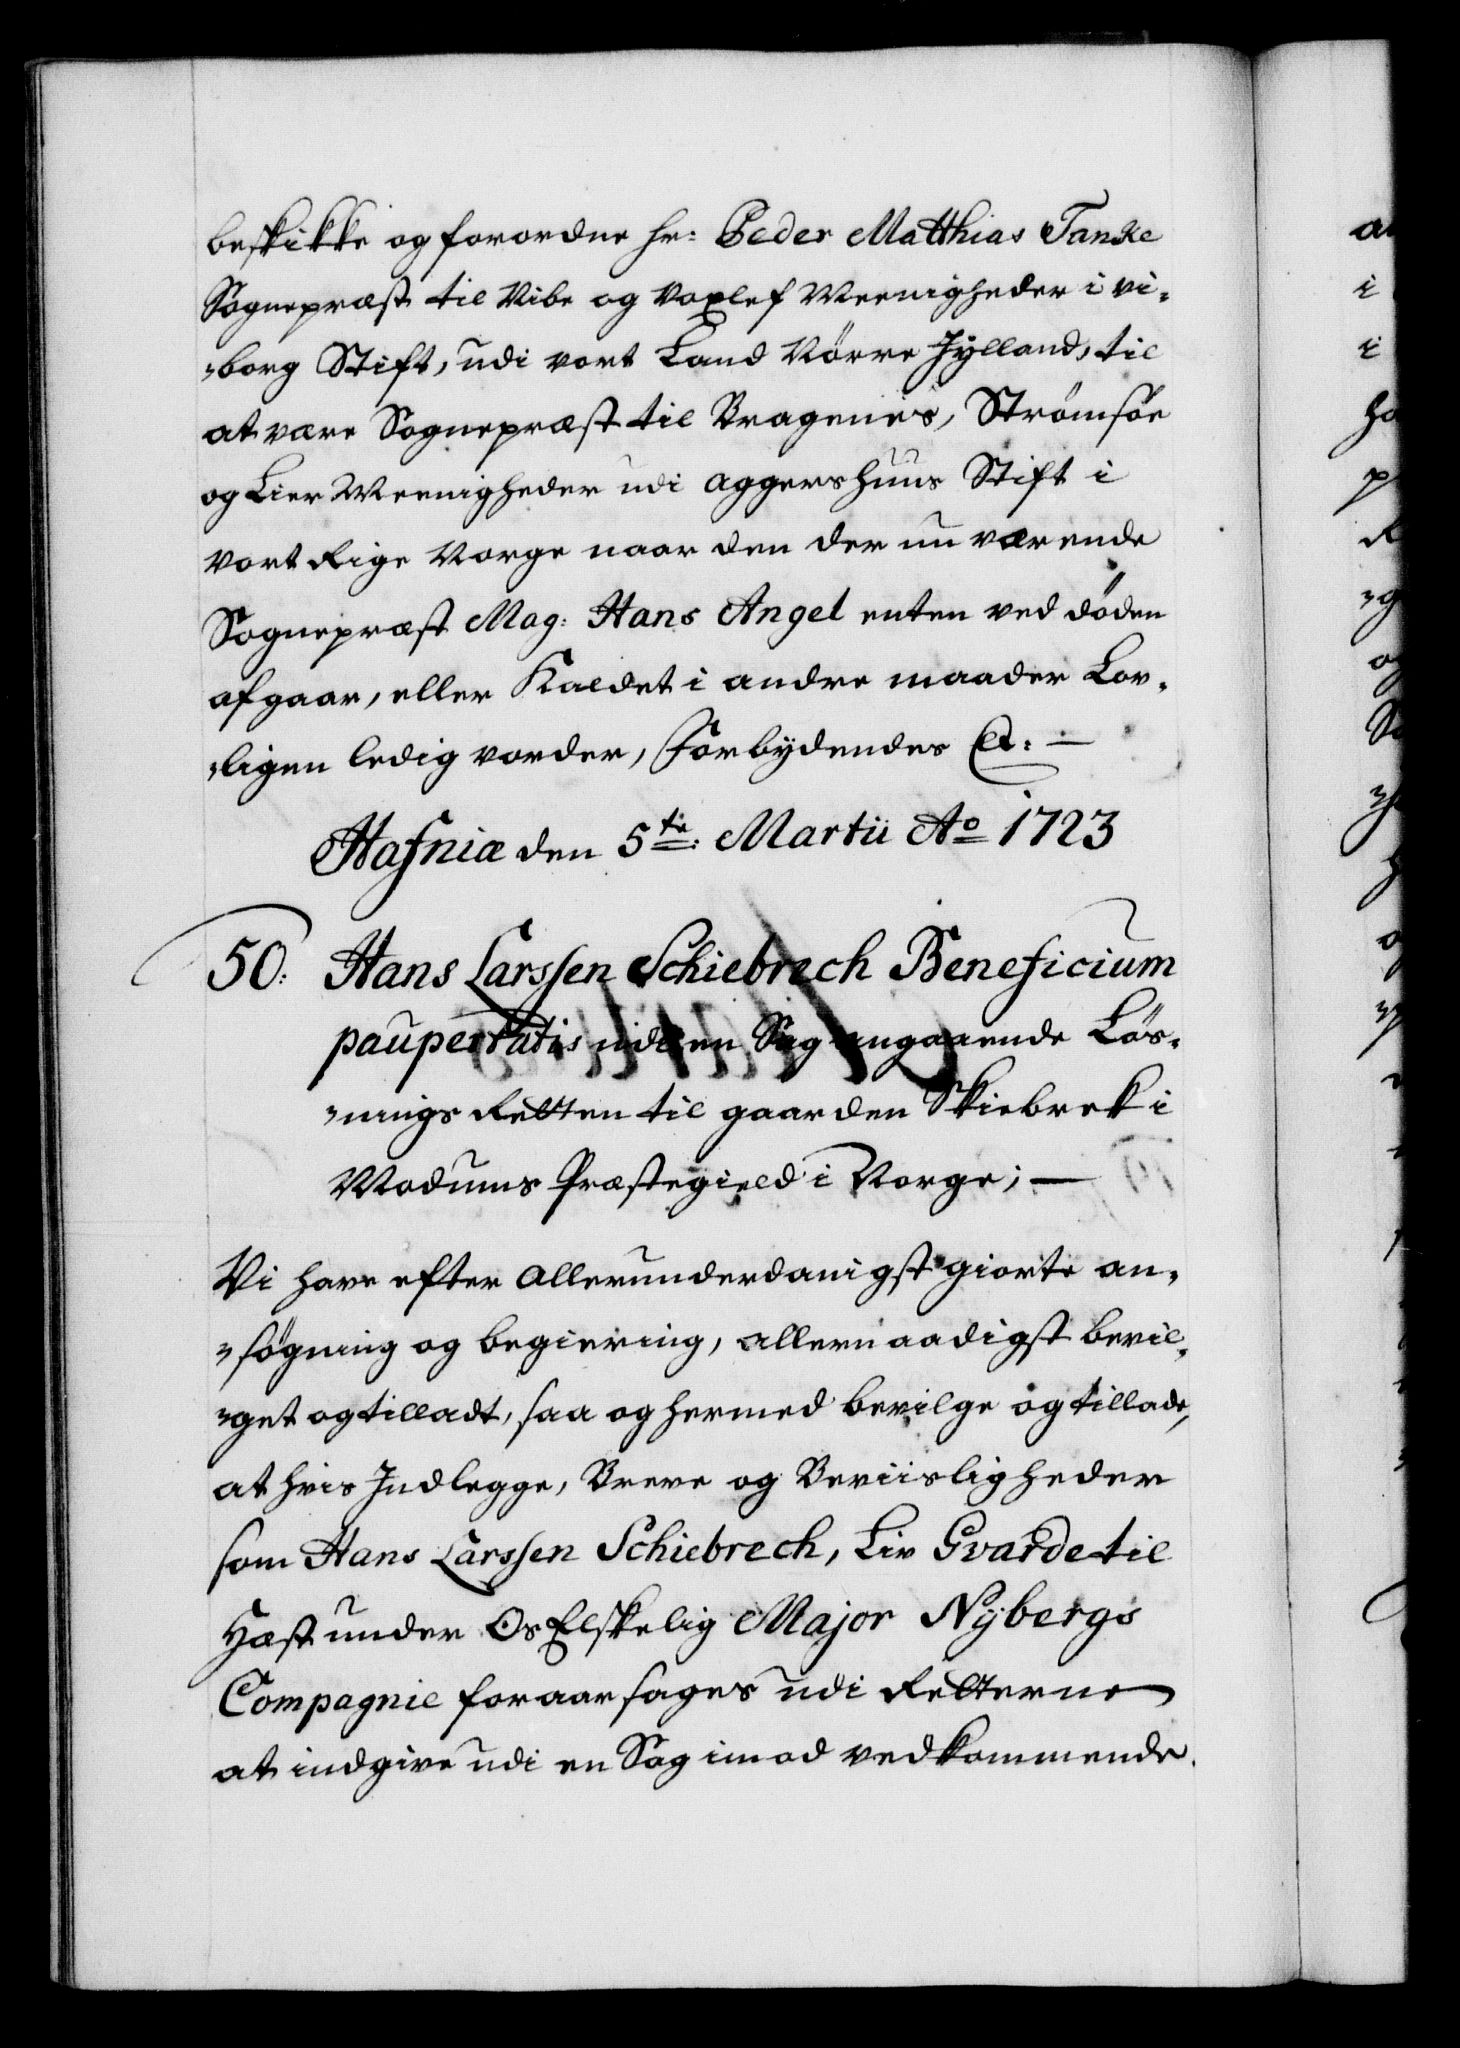 beskikke og forordne hr: Peder Matthias Tanke
Sognepræst til Vibe og Voxlef Meenigheder i Vi-
-borg Stift, udi vort Land Nörre Jylland, til
at være Sognepræst til Bragenes, Strömsöe
og Lier Meenigheder udi Aggershuus Stift i
vort Rige Norge naar den der nu værende
Sognepræst Mag: Hans Angel enten ved döden
afgaar, eller Kaldet i andre maader Lov-
-ligen ledig vorder, Forbydendes Etc: —
Hafniæ den 5te: Martii Ao 1723
50: Hans Larssen Schiebrech Beneficium
paupertatis udi en Sag angaaende Lös-
-nings Retten til gaarden Skiebrek i
Modums Præstegield i Norge; —
Vi have efter allerunderdanigst giorte an-
-sögning og begiering, allernaadigst bevil-
-get og tilladt, saa og hermed bevilge og tillade,
at hvis Indlegge, Breve og Beviisligheder
som Hans Larssen Schiebrech, Liv Gvarde til
Hæst under Os Elskelig Major Nÿbergs
Compagnie foraarsages udi Retterne
at indgive udi en Sag imod vedkommende.